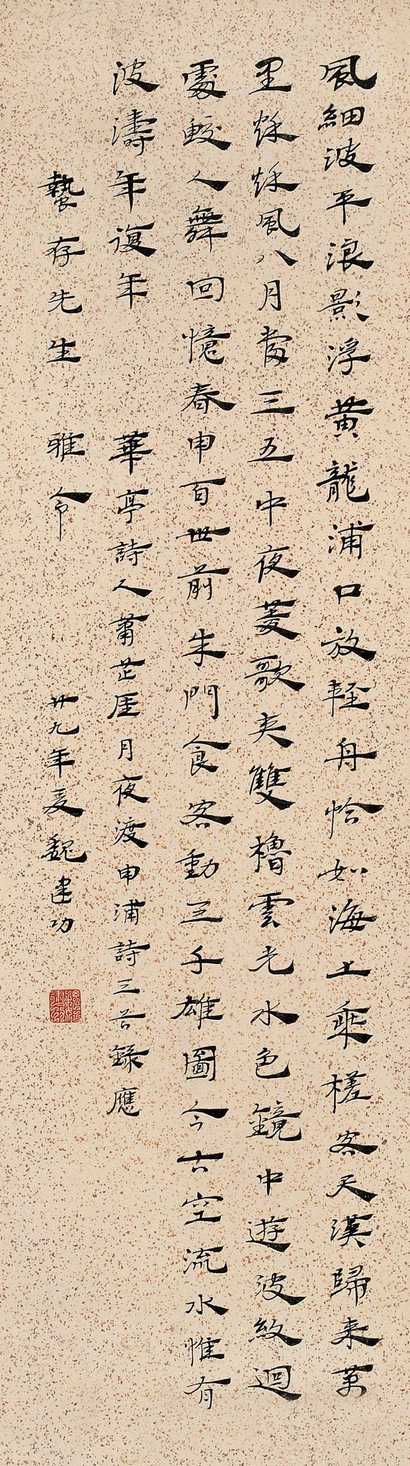 風細波平浪影浮黃龍浦口放輕舟恰如海上乘槎客天漢歸來萬
里秋秋風八月當三五中夜菱歌夾雙櫓雲光水色鏡中遊波紋迴
處鮫人舞回憶春申百世前朱門食客動三千雄圖今古空流水惟有
波濤年復年
華亭詩人蕭芷厓月夜渡申浦詩三首錄應
蟄存先生 雅命 廿九年夏魏建功